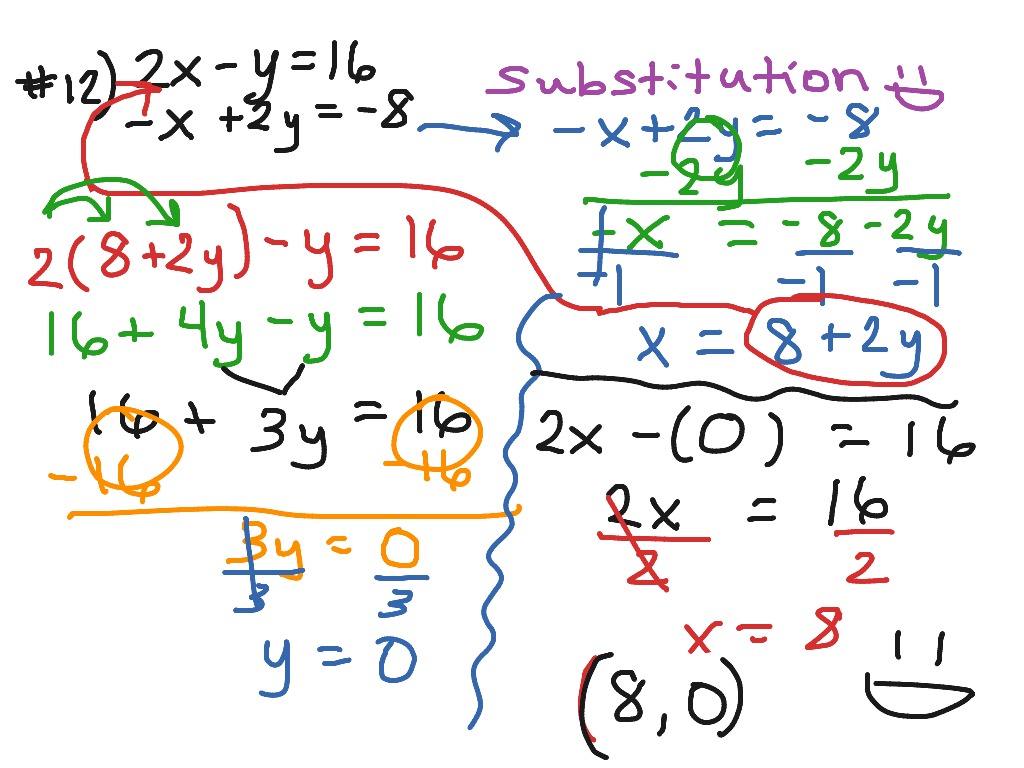 #12) 2x - y = 16
-x + 2y = -8
Substitution
-x + 2y = -8
-2y -2y
-x = -8 - 2y
-1 -1 -1
x = 8 + 2y
2(8 + 2y) - y = 16
16 + 4y - y = 16
16 + 3y = 16
-16 -16
3y = 0
3 3
y = 0
2x - (0) = 16
2x = 16
2 2
x = 8
(8, 0)